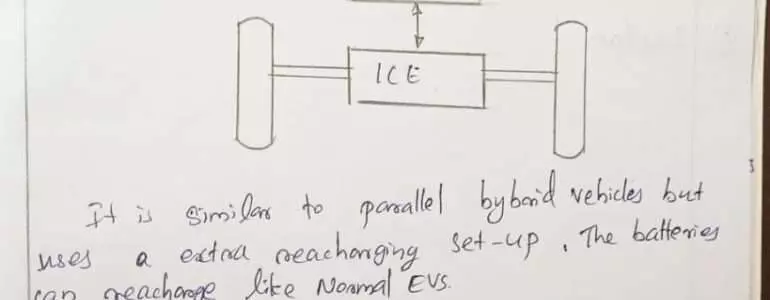 ICE
It is similar to parallel hybrid vehicles but
uses a extra reacharging set-up. The batteries
can reacharge like Normal EVs.